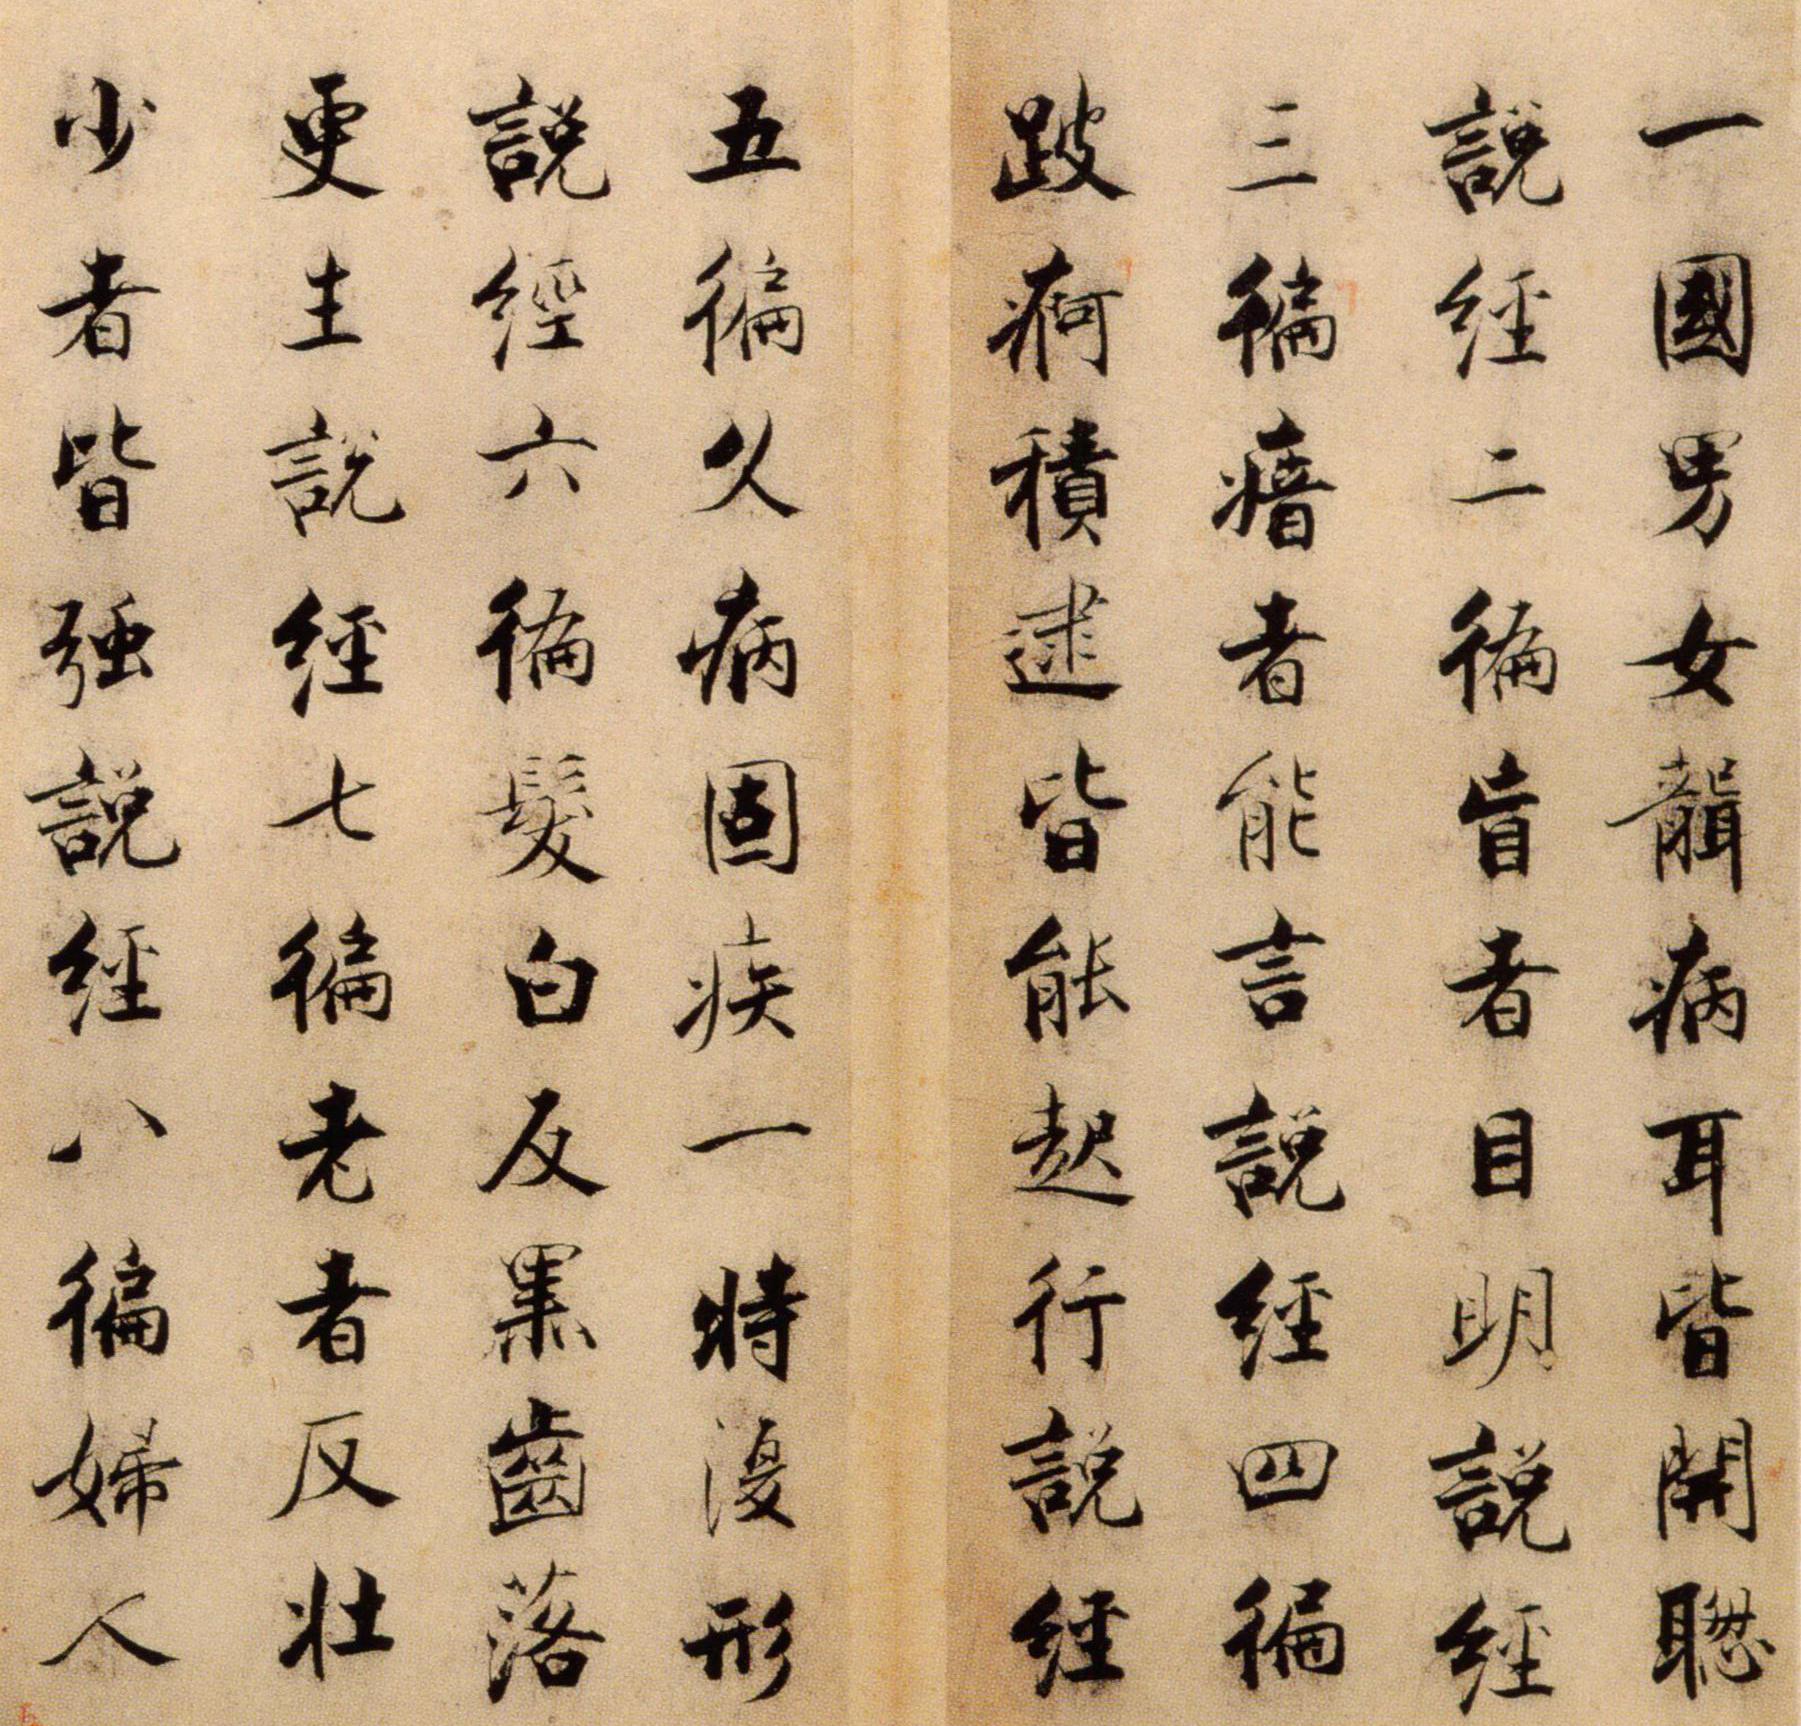 一國男女聾病耳皆開聰
說經二徧盲者目明說經
三徧瘖者能言說經四徧
跛痾積逮皆能起行說經
五徧久病固疾一時復形
說經六徧髮白反黑齒落
更生說經七徧老者反壯
少者皆強說經八徧婦人